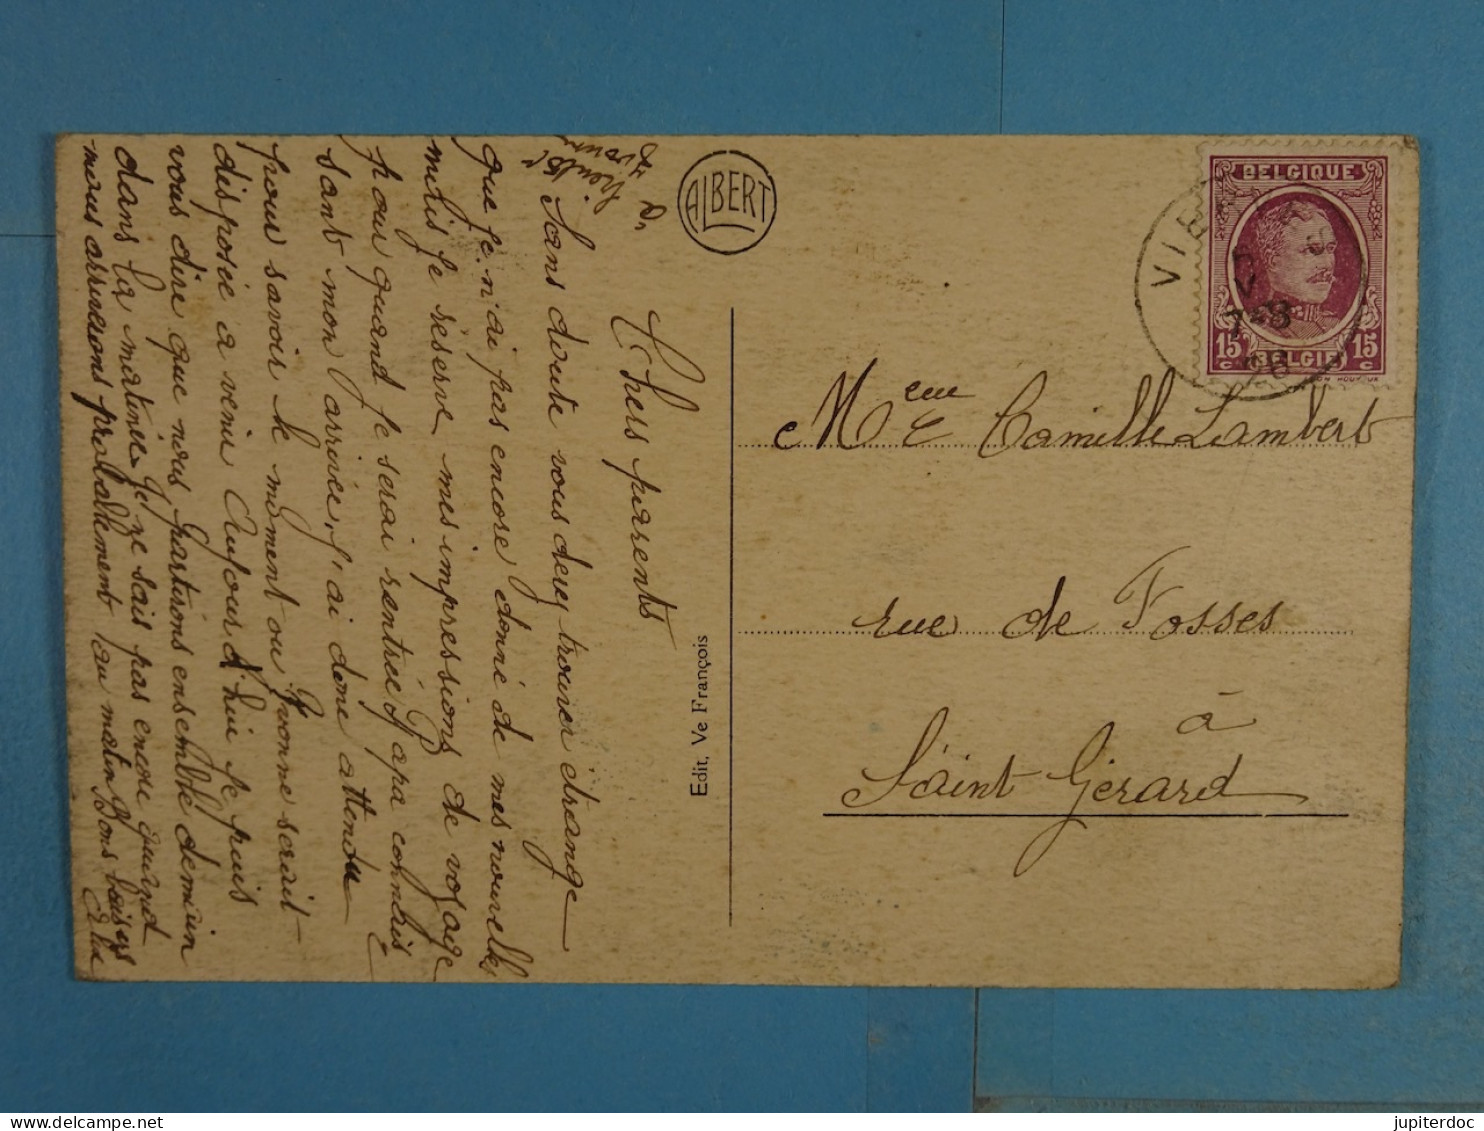 Chers parents
Sans doute vous devez trouver étrange
que je n'ai pas encore donné de mes nouvelles
mais je réserve mes impressions de voyage
pour quand je serai rentrée Papa comptais
sant mon arrivée, j'ai donc attendu
pour savoir le moment ou Yvonne serait
disposée a venir Aujourd'hui je puis
vous dire que nous partirons ensemble demain
dans la matinée Je ne sais pas encore quand
nous arriverons probablement au matin Bons baisers
ALBERT
Edit, Ve François
BELGIQUE
15 15
BELGIË
VIE
7-8
Camille Lambert
rue de Fosses
à
Saint Gérard
jupiterdoc